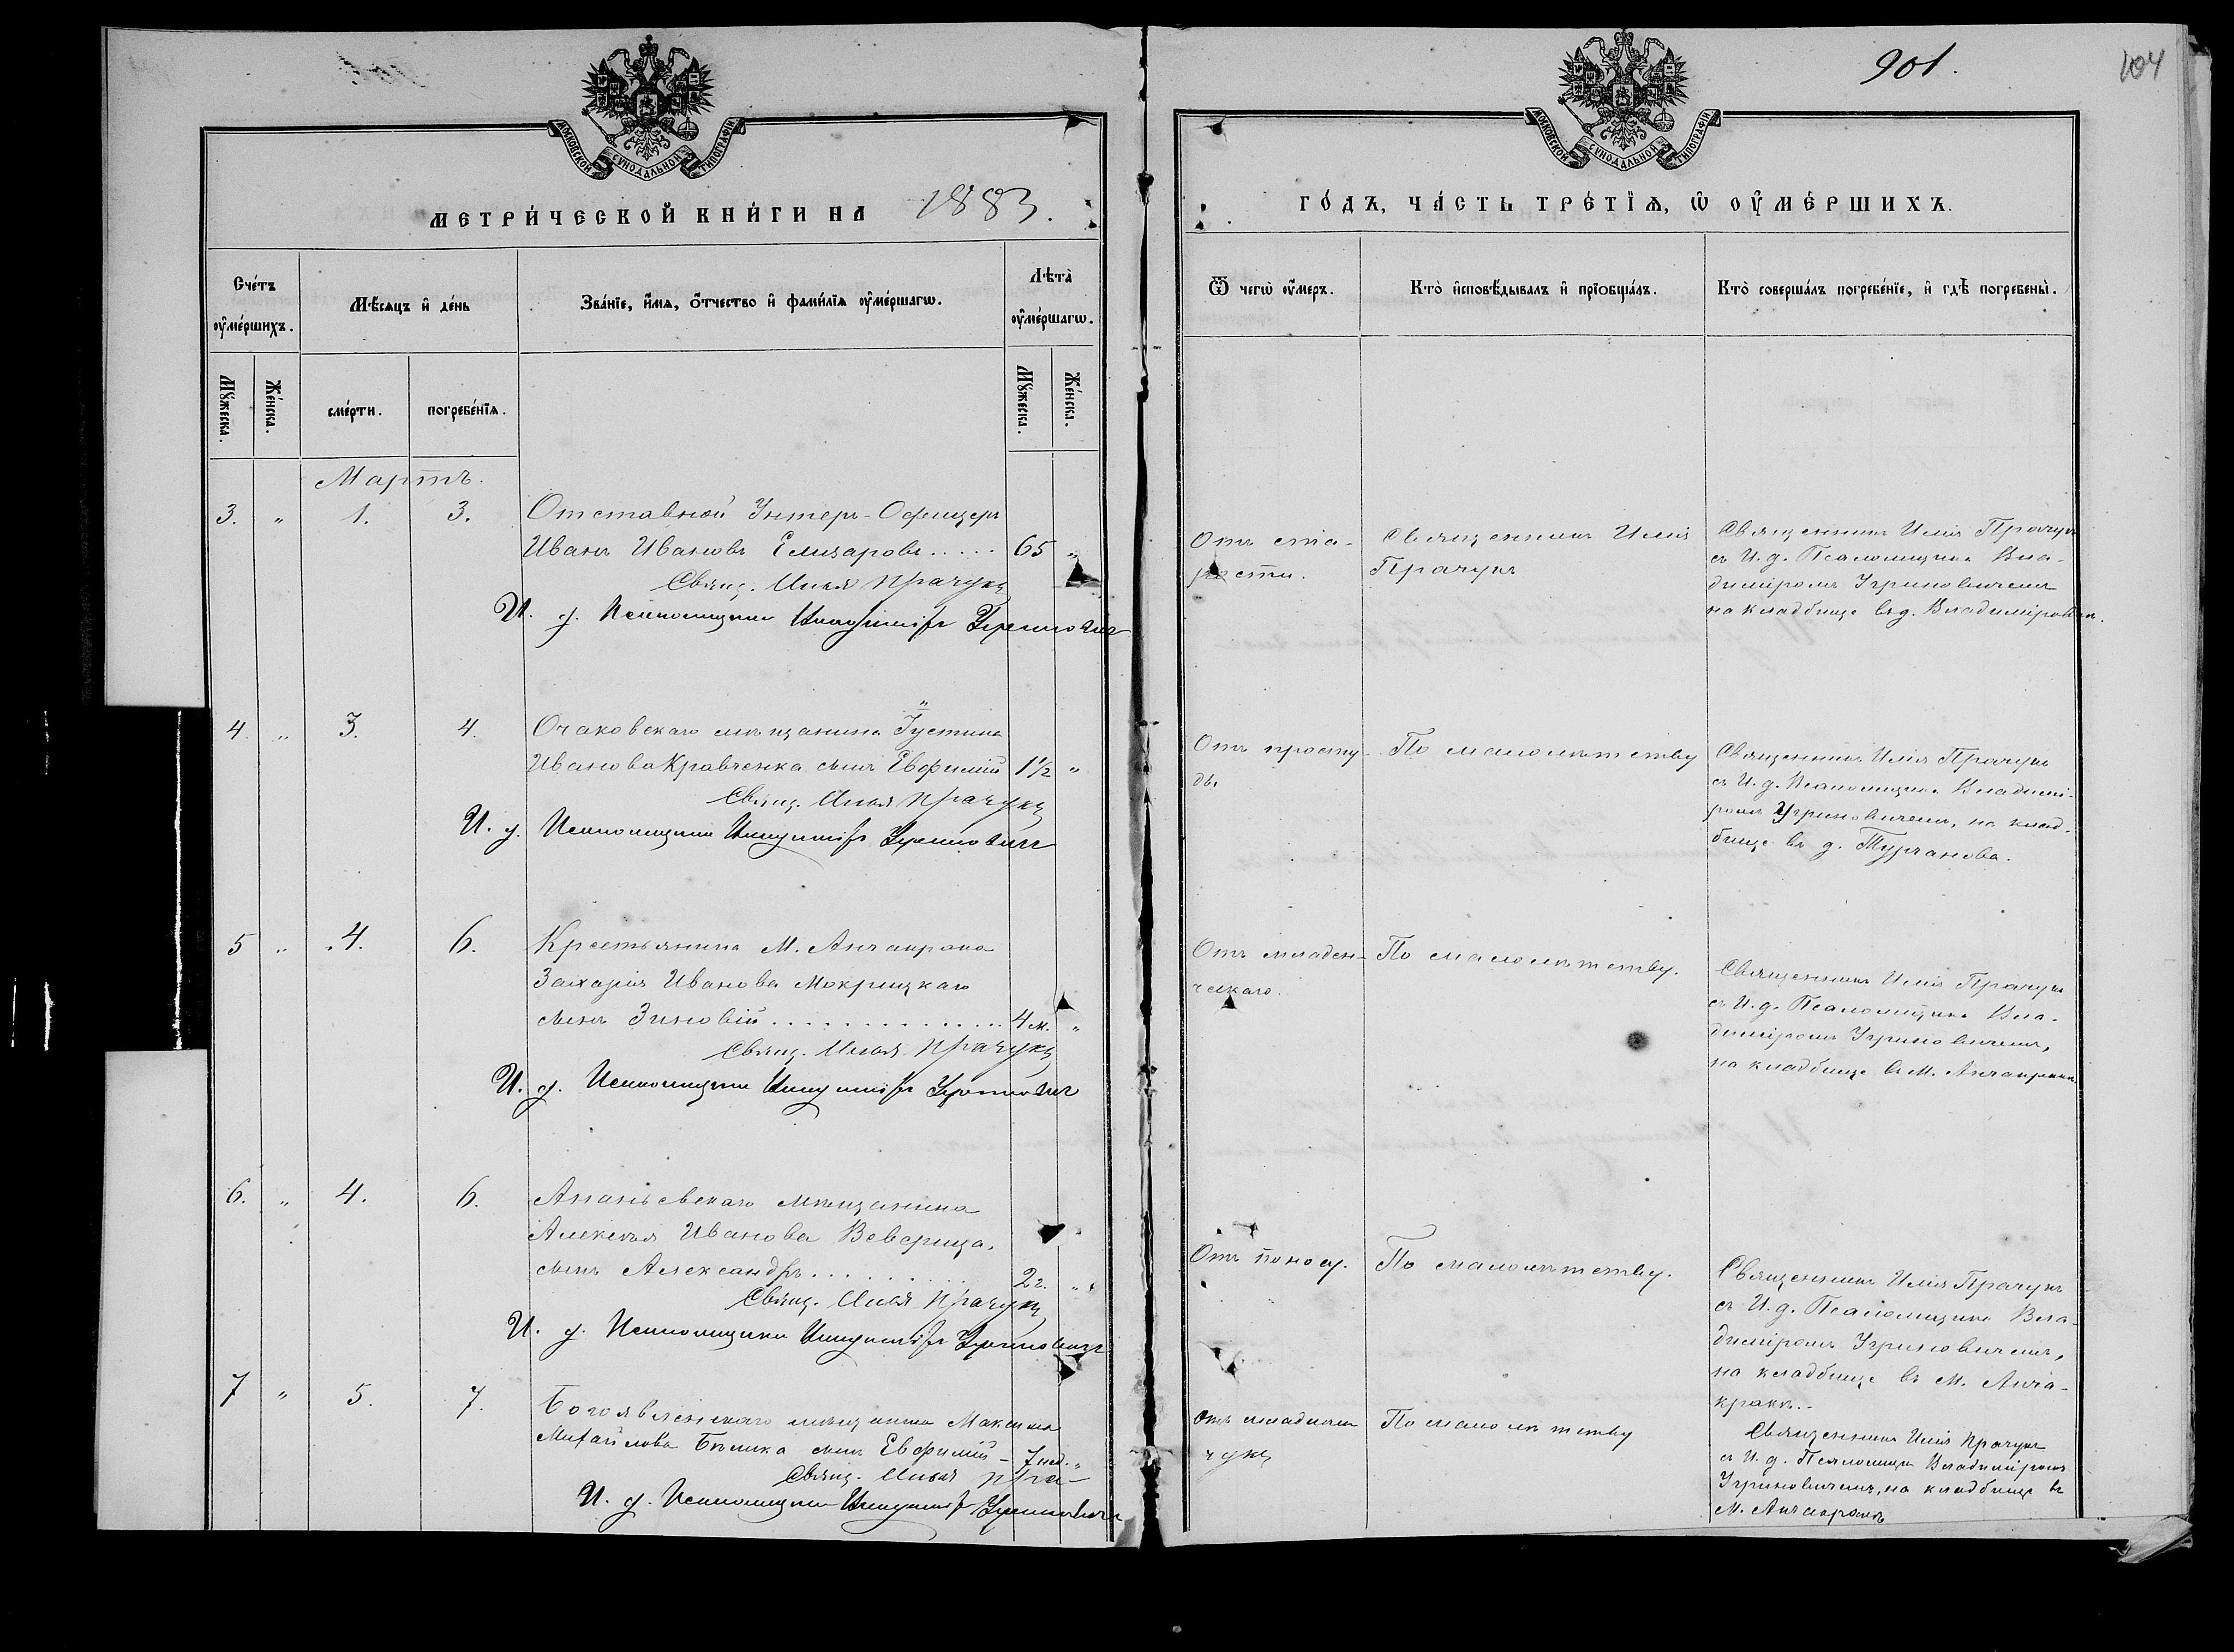 901.
104
МОСКОВСКОЙ СѴНОДАЛЬНОЙ ТИПОГРАФІИ
МОСКОВСКОЙ СѴНОДАЛЬНОЙ ТИПОГРАФІИ
МЕТРИ́ЧЕСКОЙ КНИ́ГИ НА 1883.
ГО́ДЪ, ЧА́СТЬ ТРЕ́ТІѦ, Ѡ ОУМЕ́РШИХЪ.
Сче́тъ оумершихъ.
Мꙋжеска.
Же́нска.
Мѣсѧцъ и де́нь
сме́рти.
погребе́нїѧ.
Зва́нїе, и́мѧ, о́тчество и фами́лїѧ оуме́ршагѡ.
Лѣта̀ оуме́ршагѡ.
Мꙋжеска.
Же́нска.
Ѿ чегѡ̀ оу́меръ.
Кто̀ исповѣ́дывалъ и прїобща́лъ.
Кто̀ соверша́лъ погребе́нїе, и гдѣ̀ погребены̀.
Мартъ.
3. " 1. 3.
Отставной Унтеръ-Офицеръ
Иванъ Ивановъ Елизаровъ..... 65 "
Свящ. Илья Прачукъ
И. д. Псаломщика Владиміръ Угриновичъ
Отъ ста-
рости.
Священникъ Илія
Прачукъ
Священникъ Илія Прачукъ
съ И. д. Псаломщика Вла-
диміромъ Угриновичемъ
на кладбище въ д. Владиміровки.
4. " 3. 4.
Очаковскаго мѣщанина Іустина
Иванова Кравченка сынъ Евфимій 1½ "
Свящ. Илья Прачукъ
И. д. Псаломщика Владиміръ Угриновичъ
Отъ просту-
ды
По малолѣтству
Священникъ Илія Прачукъ
съ И. д. Псаломщика Владимі-
ромъ Угриновичемъ, на клад-
бище въ д. Турчанова.
5 " 4. 6.
Крестьянина М. Анчакрака
Захарія Иванова Мокрицкаго
сынъ Зиновій.............. 4 м. "
Свящ. Илья Прачукъ
И. д. Псаломщика Владиміръ Угриновичъ
Отъ младен-
ческаго.
По малолѣтству.
Священникъ Илія Прачукъ
съ И. д. Псаломщика Вла-
диміромъ Угриновичемъ,
на кладбище въ М. Анчакракѣ
6. " 4. 6.
Ананьевскаго мѣщанина
Алексѣя Иванова Веверица.
сынъ Александръ.......... 2 г. "
Свящ. Илья Прачукъ
И. д. Псаломщика Владиміръ Угриновичъ
Отъ поносу.
По малолѣтству.
Священникъ Илія Прачукъ
съ И. д. Псаломщика Вла-
диміромъ Угриновичемъ,
на кладбище въ М. Анча-
кракѣ.-
7 " 5. 7.
Богоявленскаго мѣщанина Максима
Михайлова Бѣлика сынъ Евфимій - 7 нед. "
Свящ. Илья Пра-
И. д. Псаломщика Владиміръ Угриновичъ
чукъ
По малолѣтству
Священникъ Илія Прачукъ
съ И. д. Псаломщика Владиміромъ
Угриновичемъ, на кладбище въ
М. Анчакракѣ